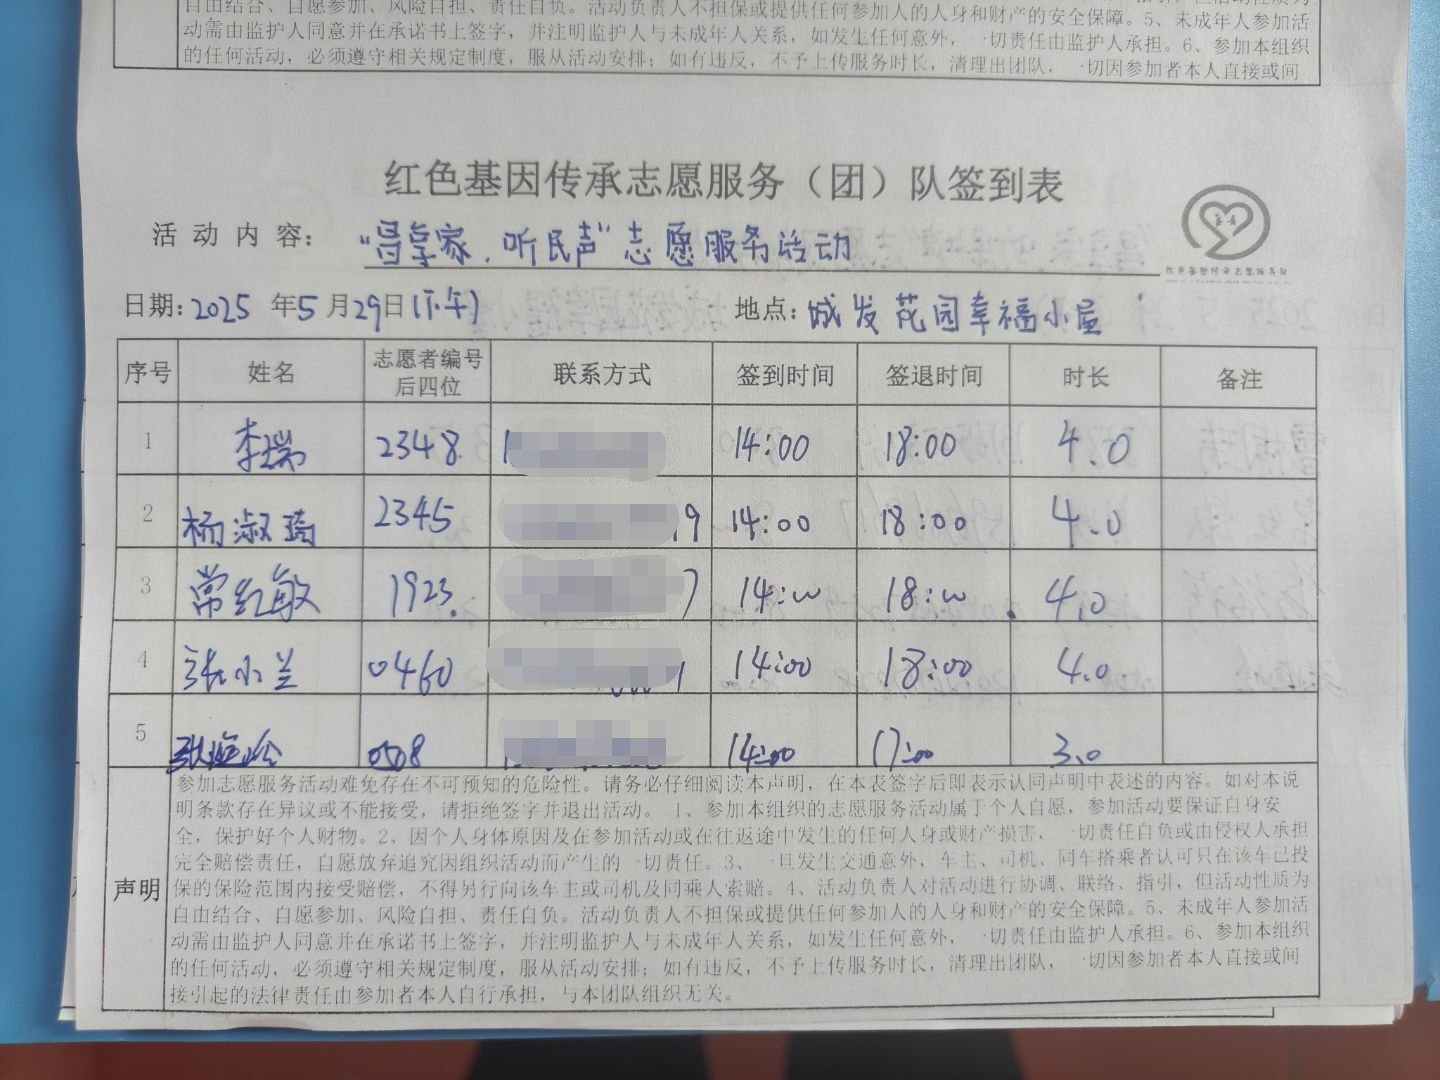 自由结合、自愿参加、风险自担、责任自负。活动负责人不担保或提供任何参加人的人身和财产的安全保障。5、未成年人参加活
动需由监护人同意并在承诺书上签字，并注明监护人与未成年人关系，如发生任何意外，一切责任由监护人承担。6、参加本组织
的任何活动，必须遵守相关规定制度，服从活动安排；如有违反，不予上传服务时长，清理出团队，一切因参加者本人直接或间
红色基因传承志愿服务（团）队签到表
活动内容：“昌享家、听民声”志愿服务活动
日期：2025年5月29日(下午) 地点：城发花园幸福小屋
序号 姓名 志愿者编号后四位 联系方式 签到时间 签退时间 时长 备注
1 李瑞 2348 1 14:00 18:00 4.0
2 杨淑琦 2345 9 14:00 18:00 4.0
3 常红敏 1923 7 14:00 18:00 4.0
4 张小兰 0460 1 14:00 18:00 4.0
5 0508 14:00 17:00 3.0
声明
参加志愿服务活动难免存在不可预知的危险性。请务必仔细阅读本声明，在本表签字后即表示认同声明中表述的内容。如对本说
明条款存在异议或不能接受，请拒绝签字并退出活动。 1、参加本组织的志愿服务活动属于个人自愿，参加活动要保证自身安
全，保护好个人财物。2、因个人身体原因及在参加活动或在往返途中发生的任何人身或财产损害，一切责任自负或由侵权人承担
完全赔偿责任，自愿放弃追究因组织活动而产生的一切责任。3、一旦发生交通意外，车主、司机、同车搭乘者认可只在该车已投
保的保险范围内接受赔偿，不得另行向该车主或司机及同乘人索赔。4、活动负责人对活动进行协调、联络、指引，但活动性质为
自由结合、自愿参加、风险自担、责任自负。活动负责人不担保或提供任何参加人的人身和财产的安全保障。5、未成年人参加活
动需由监护人同意并在承诺书上签字，并注明监护人与未成年人关系，如发生任何意外，一切责任由监护人承担。6、参加本组织
的任何活动，必须遵守相关规定制度，服从活动安排；如有违反，不予上传服务时长，清理出团队，一切因参加者本人直接或间
接引起的法律责任由参加者本人自行承担，与本团队组织无关。